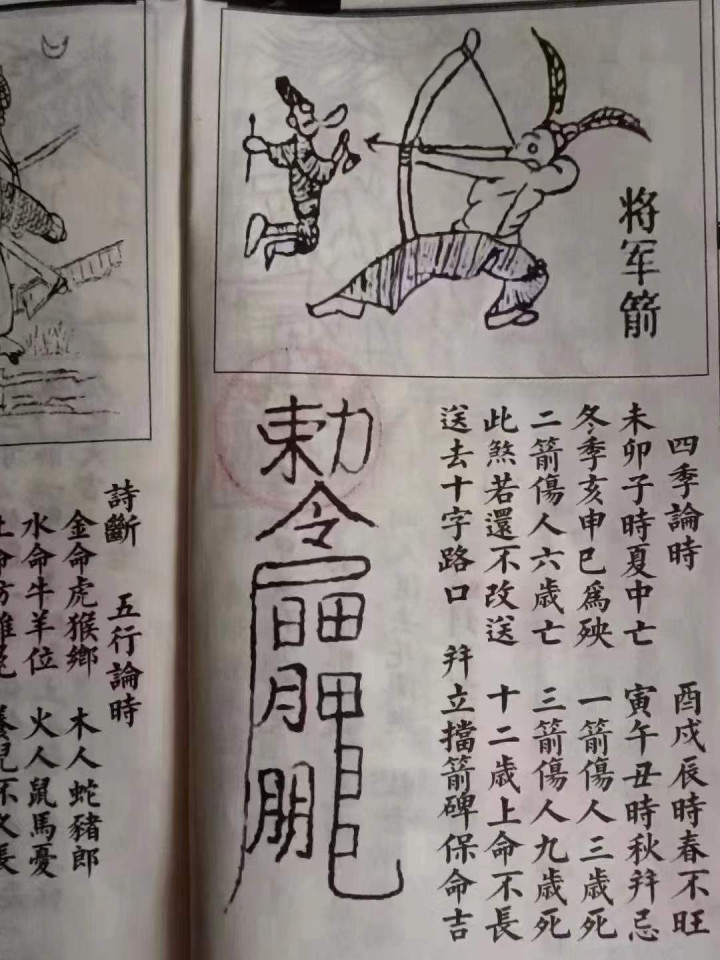 将军箭
四季論時 酉戌辰時春不旺
未卯子時夏中亡 寅午丑時秋幷忌
冬季亥申巳爲殃 一箭傷人三歲死
二箭傷人六歲亡 三箭傷人九歲死
此煞若還不改送 十二歲上命不長
送去十字路口 幷立擋箭碑保命吉
勅令
詩斷 五行論時
金命虎猴鄉 木人蛇豬郎
水命牛羊位 火人鼠馬憂